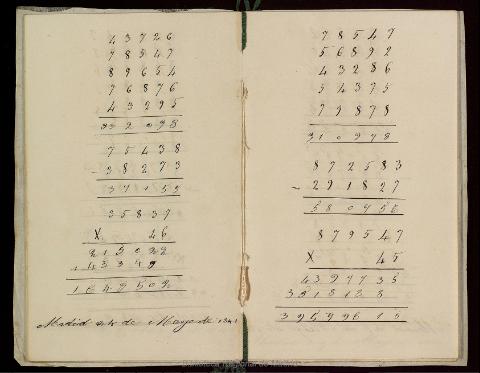 43726
78547
89654
76876
43295
332098
75438
- 28273
37155
35837
X 46
215022
143348
1648502
Madrid 24 de Mayo de 1841
78547
56892
43286
54375
77878
310978
872583
- 291827
580756
879547
X 45
4397735
3518188
39579615